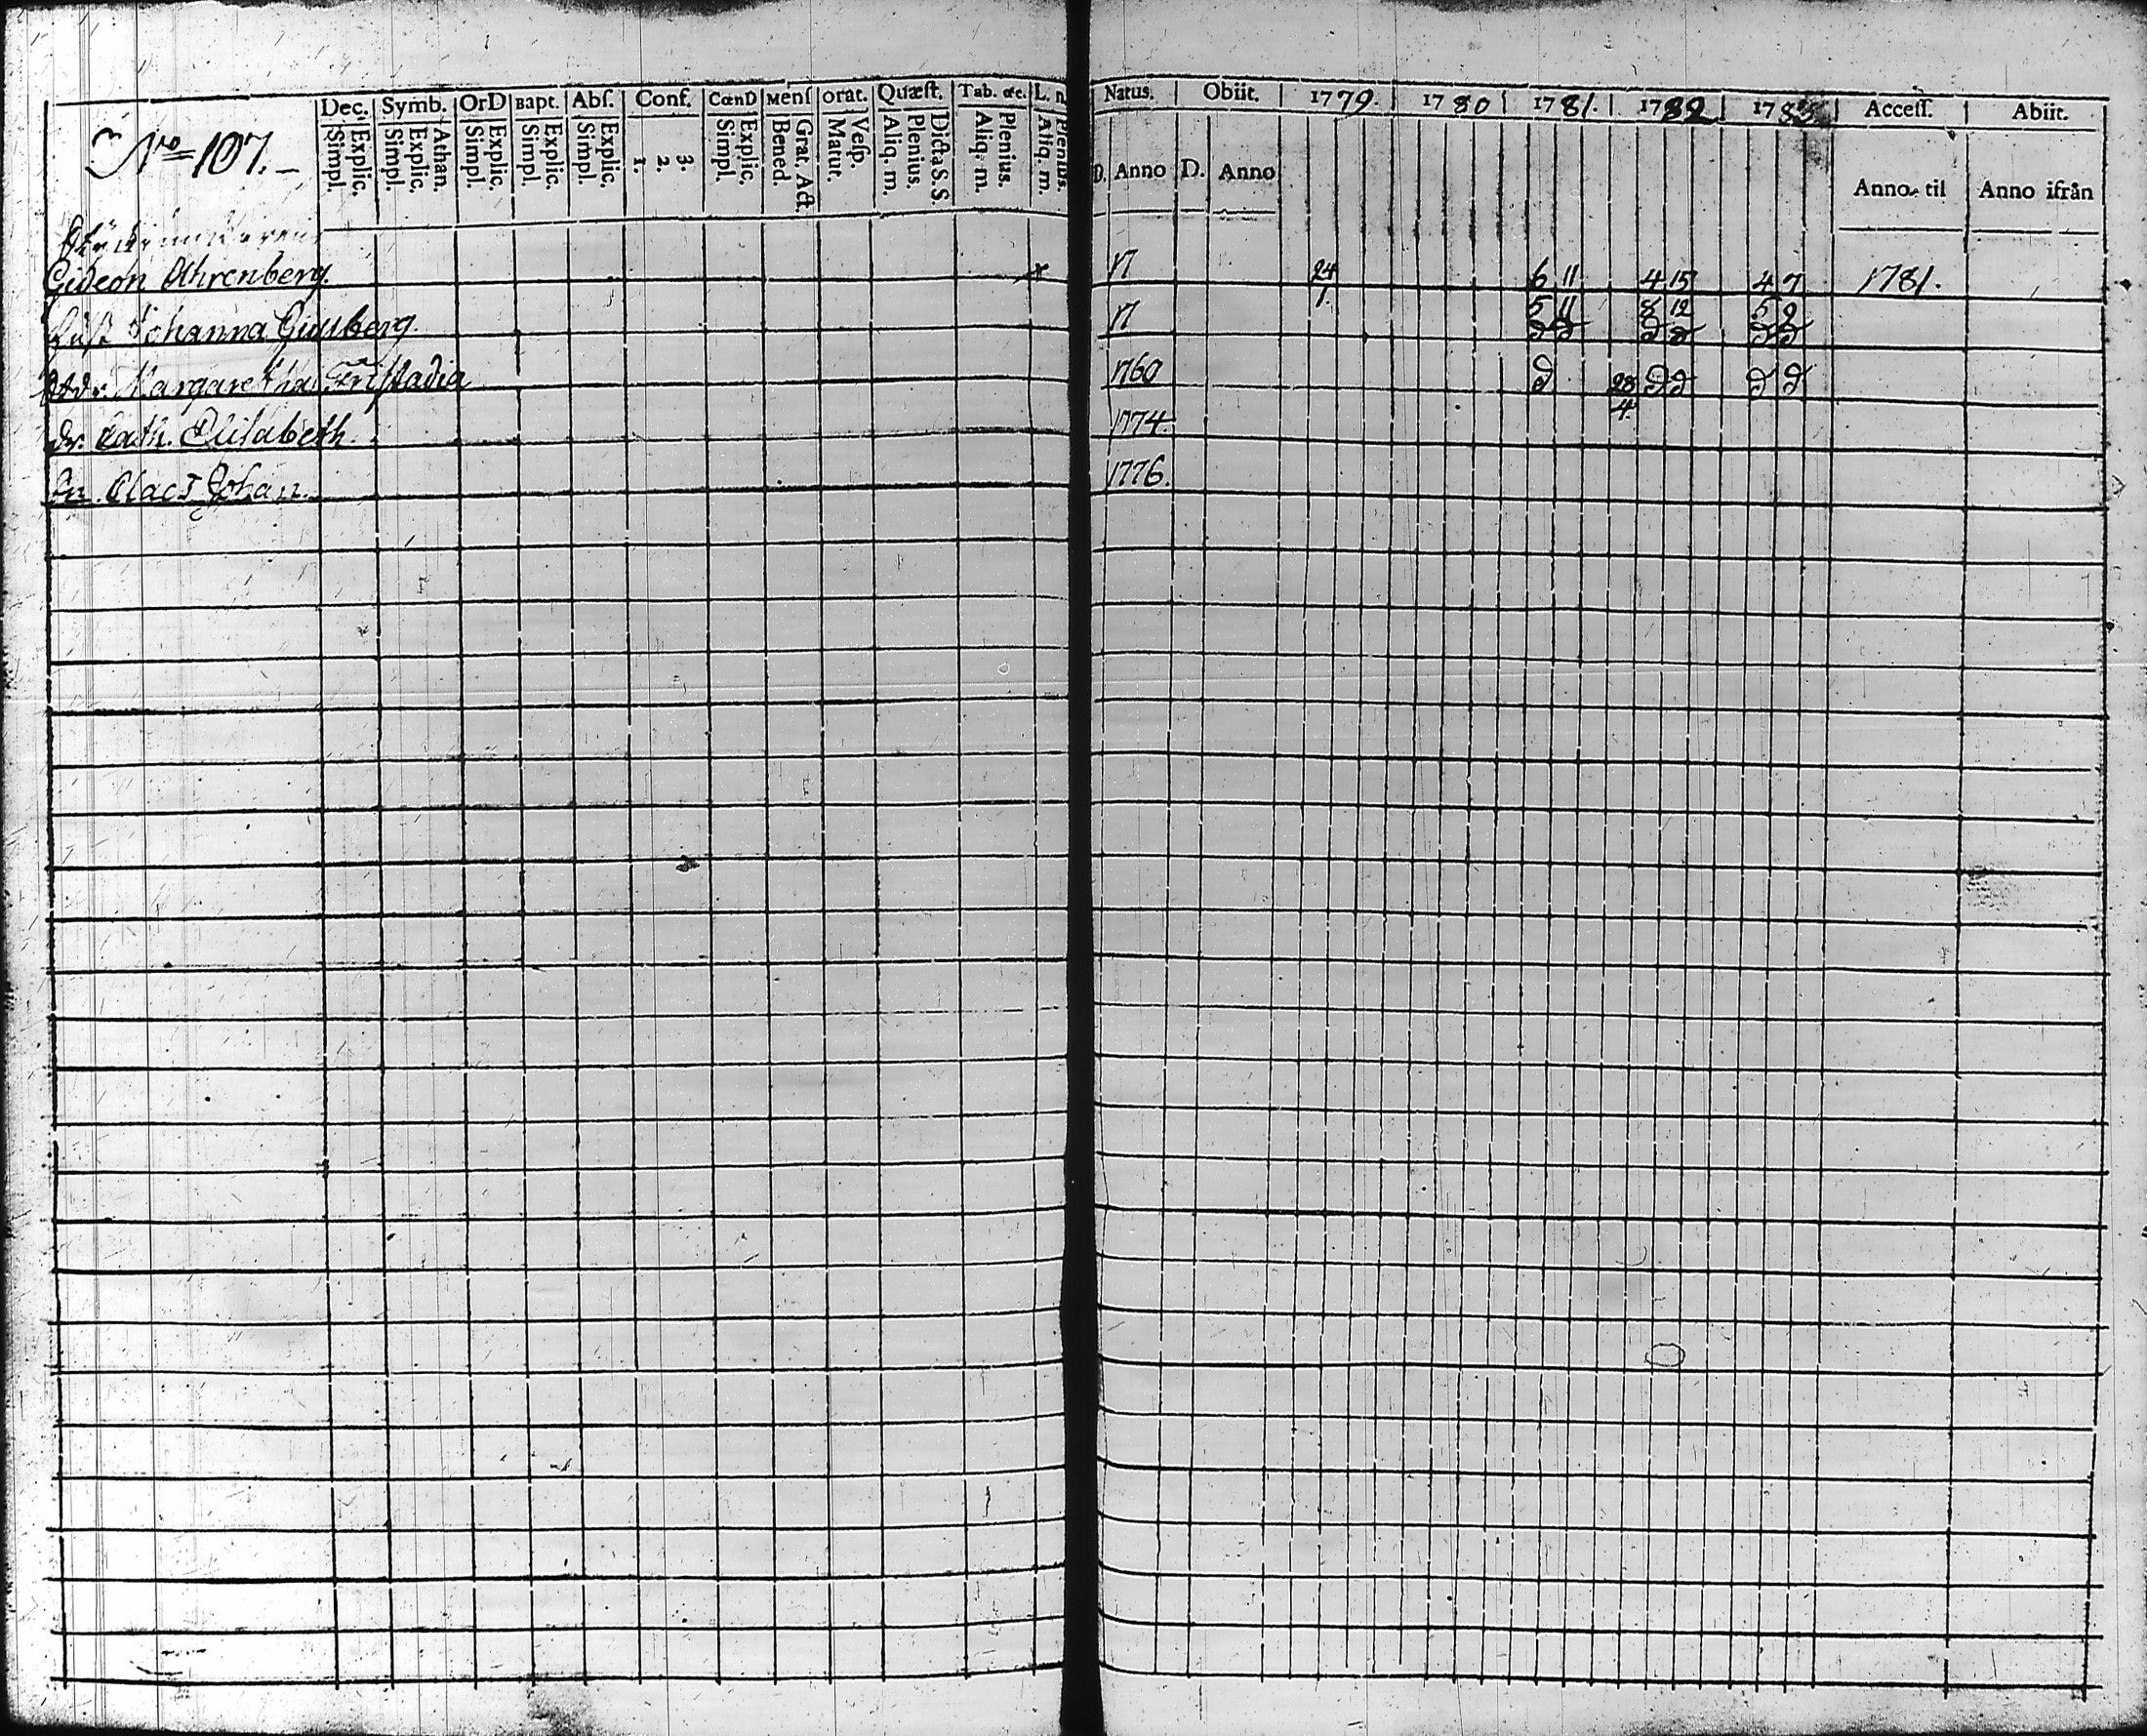 Dec. Symb. OrD Bapt. Abſ. Conf. CœnD Menſ Orat. Quæſt. Tab. œc. L. n
Simpl. Explic. Simpl. Explic. Athan. Simpl. Explic. Simpl. Explic. Simpl. Explic. 1. 2. 3. Simpl. Explic. Bened. Grat. Act. Matur. Veſp. Aliq. m. Plenius. Dicta S.S. Aliq. m. Plenius. Aliq. m. Plenius.
Nro 107.
Gideon Ahrenberg. x
Johanna
Margaretha
Dr. Cath. Elisabeth.
Johan.
Natus. Obiit. 1779. 1780 1781. 1782 1783 Acceſſ. Abiit.
D. Anno D. Anno Anno til Anno ifrån
17 24/1. 6 11 4 15 4 7 1781.
17 5 11 8 12 5 9
D D D D D D
1760 D 28/4 D D D D
1774.
1776.